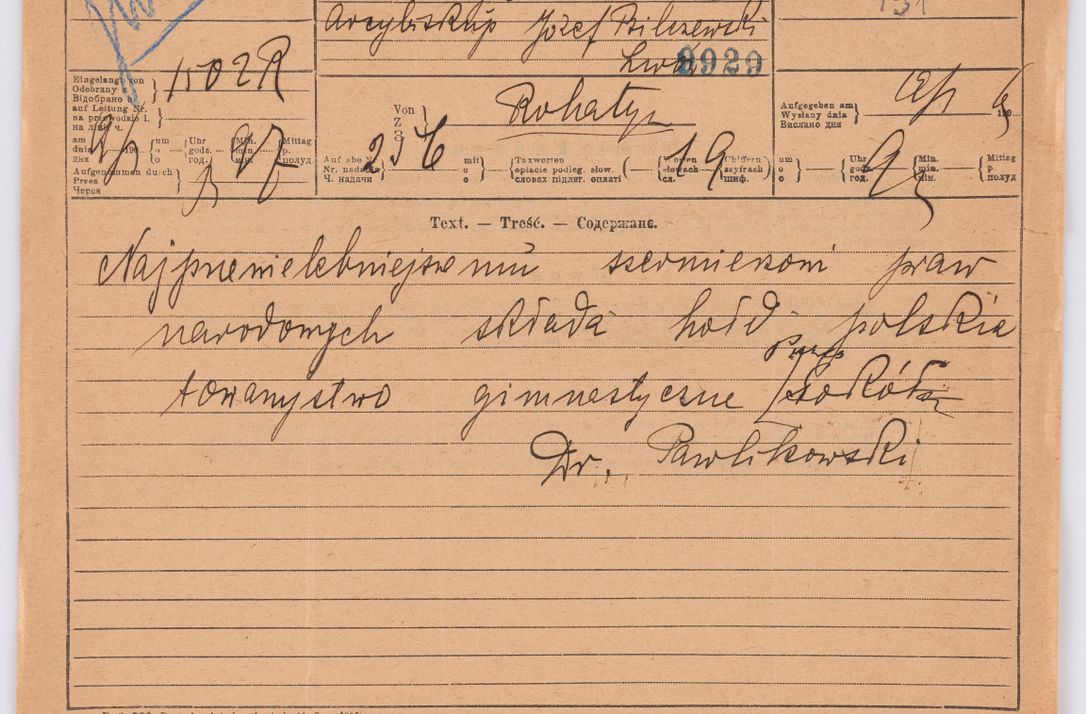 Arcybiskup Józef Bilczewski
Lwów
2929
1502R
Eingelangt von
Odebrany
Відобрано з
auf Leitung Nr.
na przewodzie l.
на лінії ч.
am
dnia 190
дня
um
o
o
Uhr
godz.
год.
Min.
min.
мін.
Mittag
p.
полуд.
Aufgenommen durch
Przez
Через
Von
Z
З
Rohatyn
Aufgegeben am
Wysłany dnia
Вислано дня
190
Aufgabe Nr.
Nr. nadania
Ч. надачи
236
mit
o
o
Taxworten
opłacie podleg. słow.
словах підляг. оплаті
Worten
słowach
сл.
19
Chiffern
szyfrach
шиф.
um
o
o
Uhr
godz.
год.
9
Min.
min.
мін.
Mittag
p
полуд
Text. — Treść. — Содержанє.
Najprzewielebniejszemu szermierzowi praw
narodowych składa hołd polskie
towarzystwo gimnastyczne Sokół
Dr. Pawlikowski